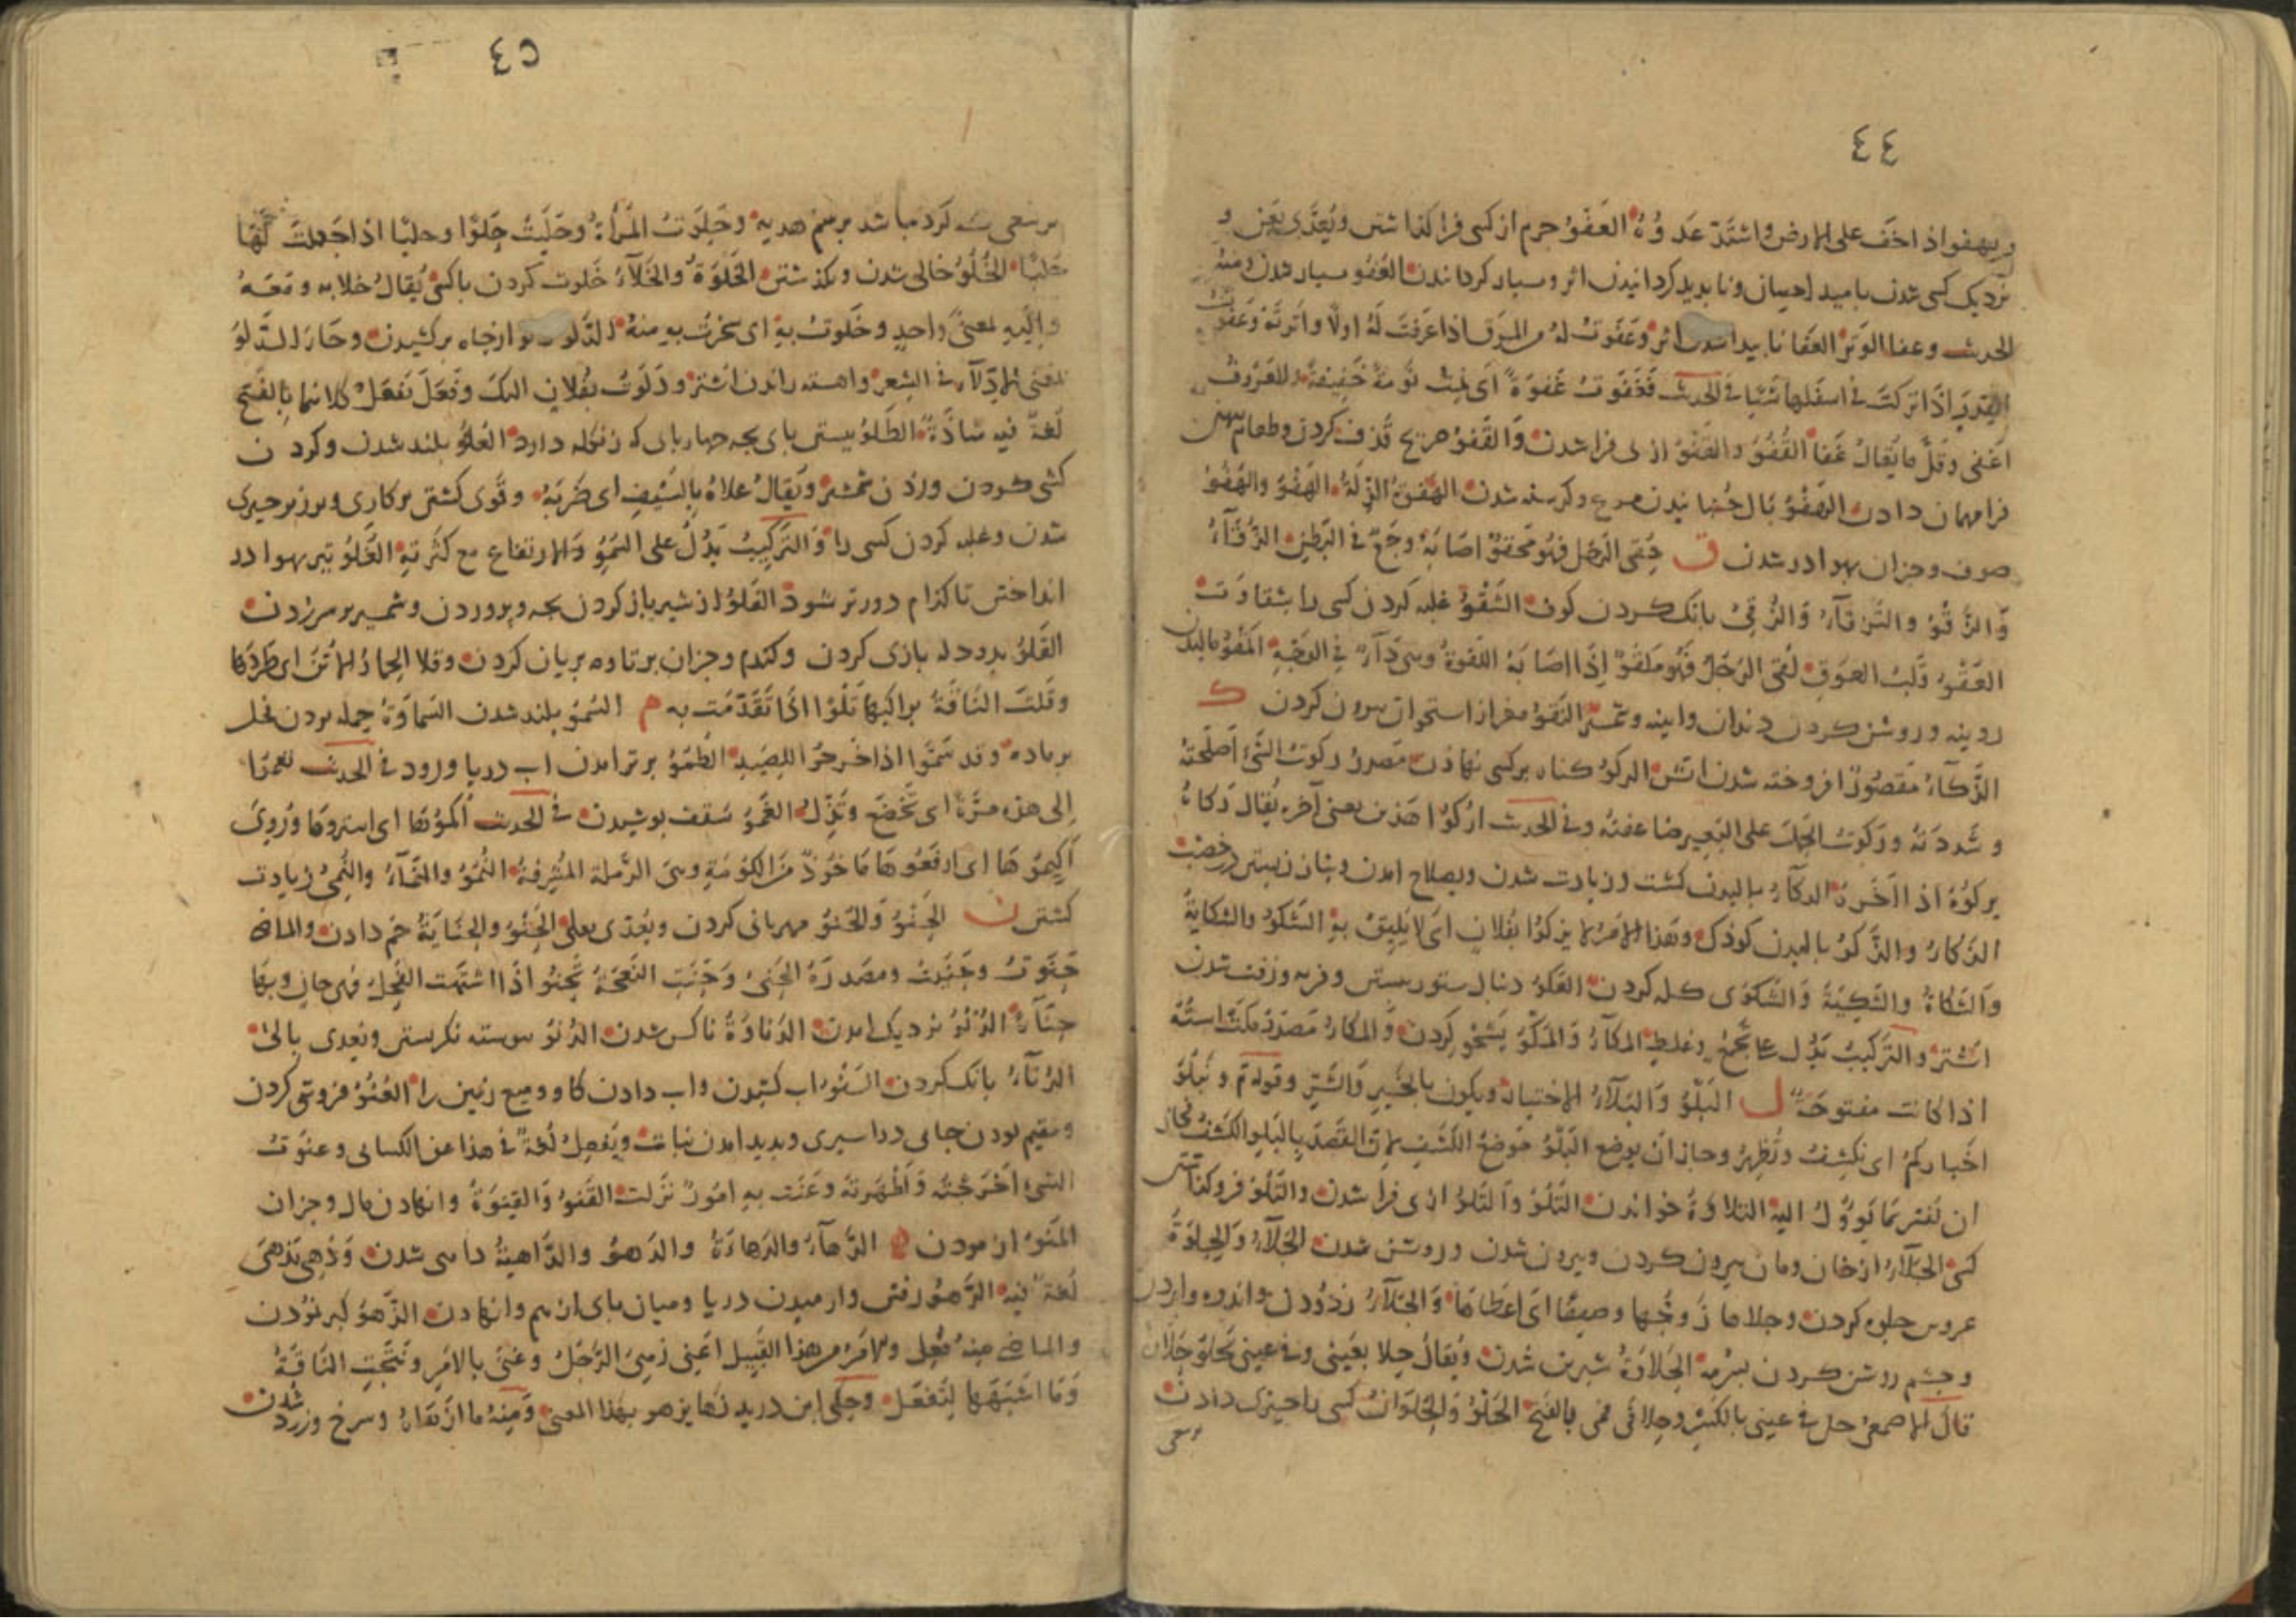 ٤٤
ويهفو اذا خف على الارض واشتد عدوه العفو جرم از كسى فرا گذاشتن ويعدى بعن و
نزديک كسى شدن باميد احسان ونا بديد كردانيدن اثر وبسيار كردانيدن العفو بسيار شدن ومنه
الحديث وعفا الوبر العفا نا بيدا شدن اثر وعفوت له من المرق اذا غرفت له اولا واثرته وعفوت
القدر اذا تركت فى اسفلها شيئا فى الحديث فغفوت غفوة اى نمت نومة خفيفة والمعروف
اغفى وقل ما يقال غفا القفو والقفو از بى فرا شدن والقفو صريح قذف كردن وطعام
فرا مهمان دادن الهفو بال جنبانيدن مرغ وكرسنه شدن الهفوة الزلة الهفو والهفو
صوف وجزان بهوا در شدن ق حقى الرجل فهو محقو اصابه وجع فى البطن الزقاء
والزقو والزقاء والزقى بانک كردن كوف الشقو غلبه كردن كسى را بشقاوت
العقو قلب العوق لقى الرجل فهو ملقو اذا اصابه اللقوة وهى داء فى الوجه المقو ماليدن
روينه وروشن كردن دندان وآينه وشمشير النقو مغز از استخوان بيرون كردن ک
الذكاء مقصور افروخته شدن آتش الركو كناه بر كسى نهادن مصدر ركوت الشئ اصلحته
وشددته وركوت الحمل على البعير ضاعفته وفى الحديث اركوا هذين يعنى آخر يقال ركاه
يركوه اذا اخره الزكاء باليدن كشت وزيادت شدن وبصلاح آمدن
الزكاء والزكو باليدن كودک وهذا الامر لا يزكو بفلان اى لا يليق به الشكو والشكاية
والشكاة والشكية والشكوى كله كردن العكو دنبال ستور بستن وفربه وزفت شدن
اشتر والتركيب يدل على تجمع وغلظ المكاء والمكو كردن والمكاء مصدر مكت استه
اذا كانت مفتوحة ل البلو والبلاء الاختبار ويكون بالخير والشر وقوله تع ونبلو
اخباركم اى نكشف ونظهر وجاز ان يوضع البلو موضع الكشف لان القصد بالبلو الكشف فجاز
ان تفسر بما يؤول اليه التلاوة خواندن التلو والتلو از بى فرا شدن والتلو فرو كذاشتن
كسى الجلاء از خان ومان بيرون كردن وبيرون شدن وروشن شدن الجلاء والجلوة
عروس جلوه كردن وجلاها زوجها وصيفا اى اعطاها والجلاء زدودن واندوه وا بردن
وچشم روشن كردن بسرمه الحلاوة شيرين شدن ويقال حلا بعينى وفى عينى يحلو حلاوة
قال الاصمعى حلى فى عينى بالكسر وحلا فى فمى بالفتح الحلو والحلوان كسى را چيزى دادن
٤٥
كرده باشد برسم هديه وحلوت المرأة وحليت حلوا وحليا اذا جعلت لها
حليا الخلو خالى شدن وبگذشتن الخلوة والخلاء خلوت كردن با كسى يقال خلا به ومعه
واليه بمعنى واحد وخلوت به اى سخرت به منه الدلو دلو از جاه بركشيدن وجاز الدلو
بمعنى الادلاء فى الشعر واهسته راندن اشتر ودلوت بفلان اليک وفعل يفعل كلاهما بالفتح
لغة فيه شاذة الطلو ببستن باى بچه چهارباى كه زنكله دارد العلو بلند شدن وكردن
كشى كردن وزدن شمشير ويقال علاه بالسيف اى ضربه وقوى كشتن بر كارى وبر زبر چيزى
شدن وغلبه كردن كسى را والتركيب يدل على السمو والارتفاع مع كثرته الغلو تير بهوا در
انداختن تا كدام دورتر شود الفلو از شير باز كردن بچه وپروردن وشمشير بر سر زدن
القلو بدودله بازى كردن وكندم وجزان برتاوه بريان كردن وقلا الحمار الاتن اى طردها
وقلت الناقة براكبها تلوا اذا تقدمت به م السمو بلند شدن السماوة حمله بردن فحل
بر ماده وقد سموا اذا خرجوا للصيد الطمو برتر آمدن آب دريا ورود فى الحديث
الى هذه مرة اى تخضع وتذل الغمو سقف پوشيدن فى الحديث اكموها اى استروها وروى
اكيموها اى ارفعوها ماخوذ من الكومة وهى الرملة المشرفة النمو والنماء والنمى زيادت
كشتن ن الجنو والحنو مهربانى كردن ويعدى بعلى الحنو والحناية خم دادن والماضى
حنوت وحنيت ومصدره الحنى وحنت النعجة تحنو اذا اشتهت الفحل فهى حان وبها
حناء الدنو نزديک آمدن الدناوة ناكس شدن الرنو پيوسته نكرستن ويعدى بالى
الزناء بانک كردن السنو آب كشيدن وآب دادن كاو وميغ زمين را العنو فروتنى كردن
ومقيم بودن جاى در اسيرى وبديد آمدن نبات ويفعل لغة فى هذا عن الكسائى وعنوت
الشئ اخرجته واظهرته وعنت به امور نزلت القنو والقنوة وانهادن مال وجزان
المنو ازمودن ه الدهاء والدهاءة والدهو والداهية داهى شدن ودهى يدهى
لغة فيه الرهو رفتن وآرميدن دريا وميان باى از هم وانهادن الزهو كبر نمودن
والماضى منه فعل والامر من هذا القبيل اعنى زهى الرجل وعنى بالامر ونتجت الناقة
وما اشبهها لتفعل وحكى ابن دريد زها يزهو بهذا المعنى ومنه ما ازهاه وسرخ وزرد شدن